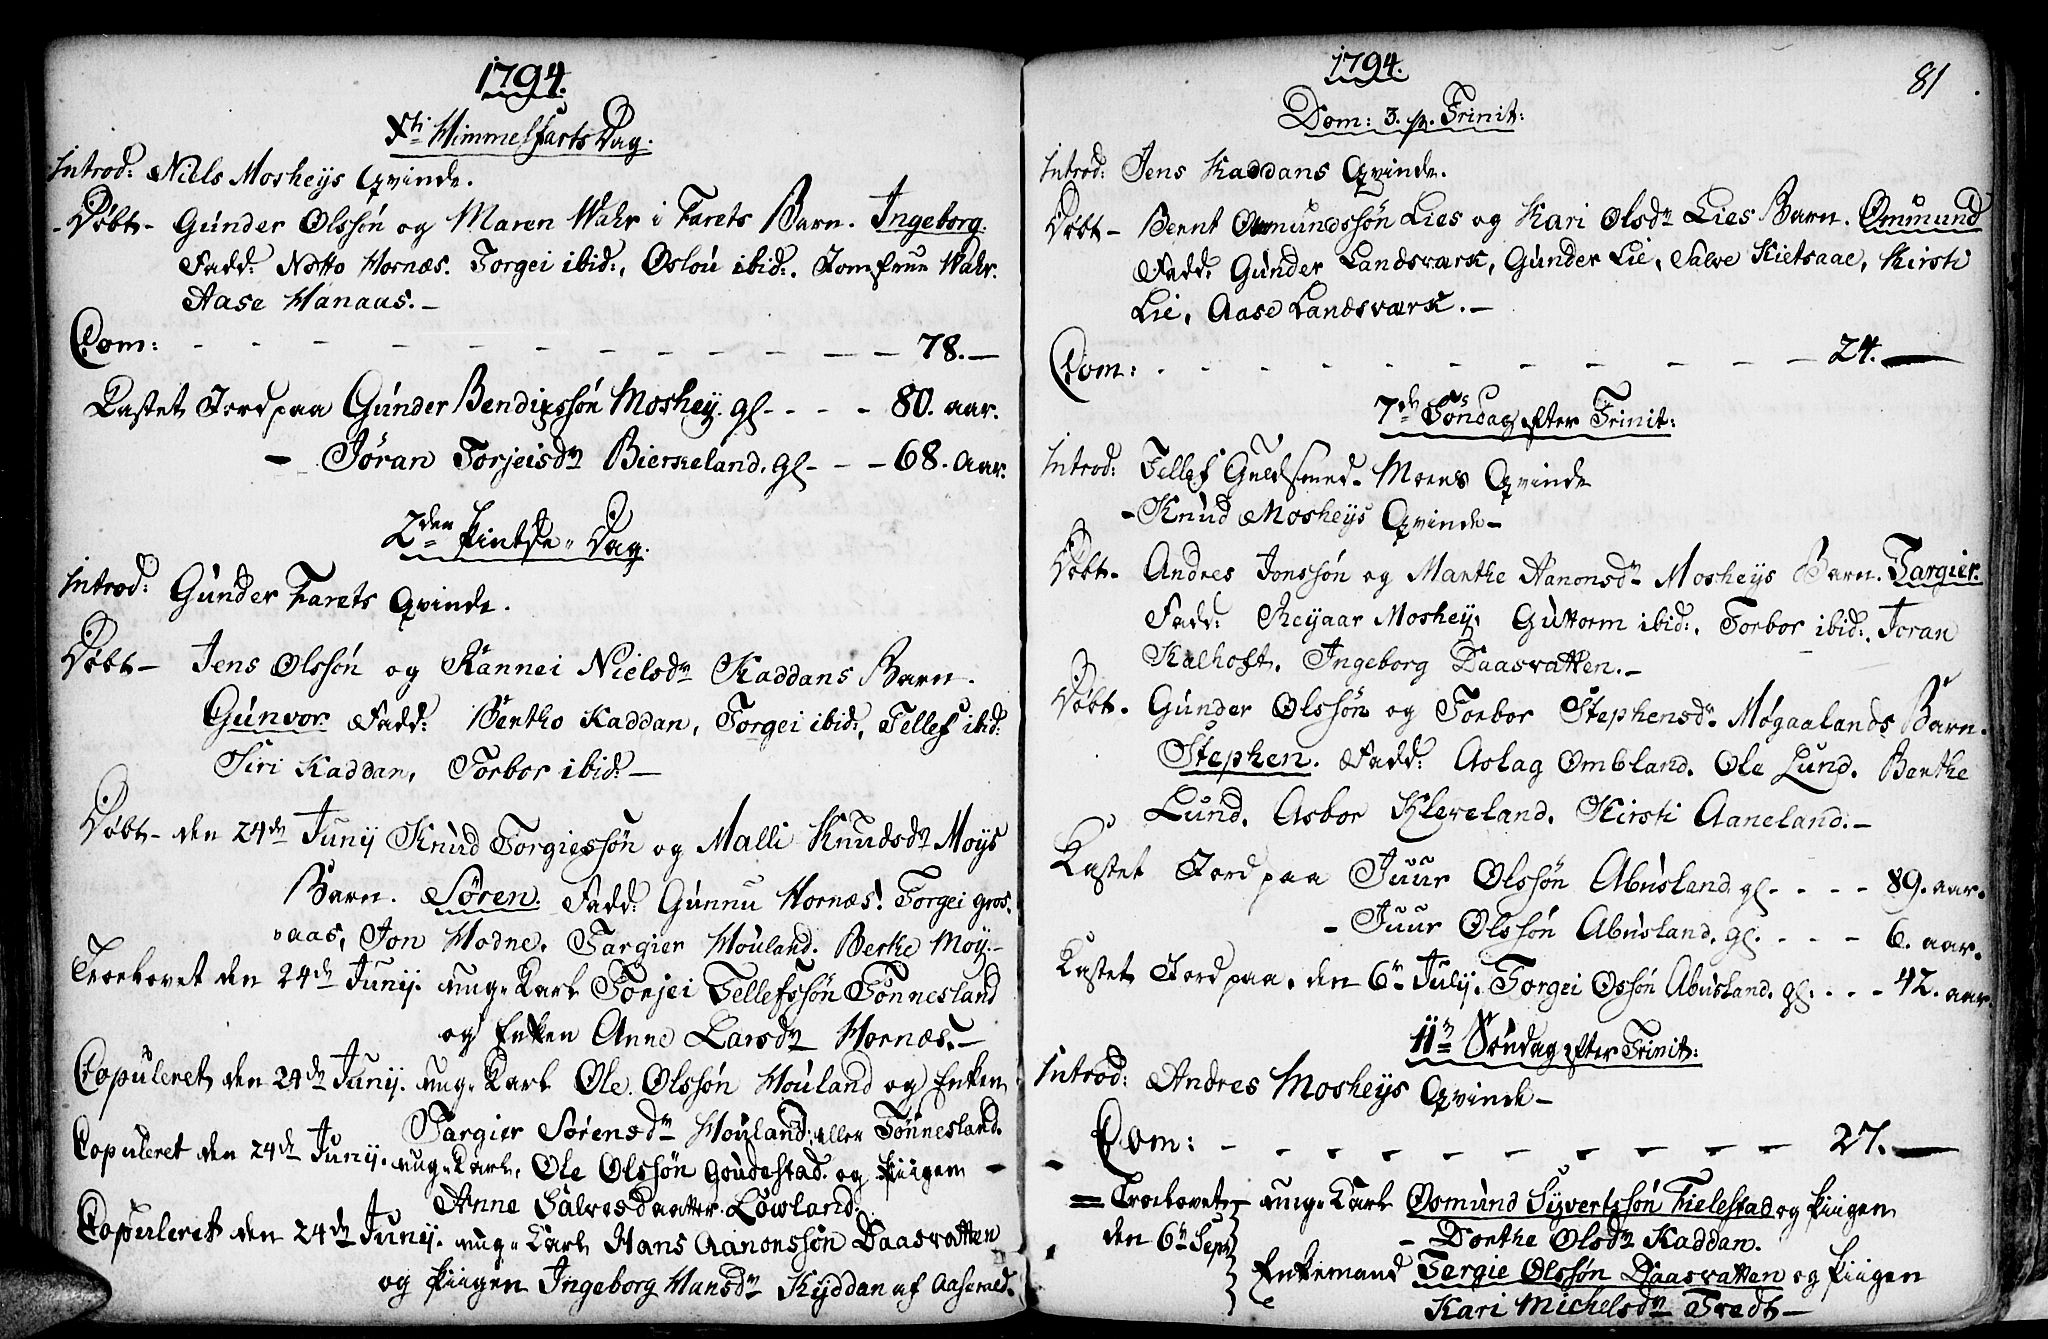 1794.
Xti Himmelfarts Dag.
Introd: Niels Mosheys Qvinde.
Döbt - Gunder Olssön og Maren Wahr i Farets Barn. Ingeborg.
Fadd: Notto Hornæs. Torgei ibid:, Oslou ibid:. Jomfrue Wahr.
Aase Hanaas. -
Com: - - - - - - - - - - - - 78. -
Kastet Jord paa Gunder Bendixssön Moshey. gl - - - - 80. aar.
- Jöran Torjeisdr Bierkeland. gl - - - 68. Aar.
2den Pintse-Dag.
Introd: Gunder Farets Qvinde.
Döbt - Jens Olssön og Rannei Nielsdr Kaddans Barn.
Gunvor. Fadd: Bertho Kaddan, Torgei ibid:, Tellef ibid:
Siri Kaddan, Torbor ibid: -
Döbt - den 24de Junij Knud Torgiessön og Malli Knudsdr Moys
Barn. Sören. Fadd: Gunnu Hornæs! Torgei gros-
aas, Jon Hodne. Targier Houland. Berthe Moy. -
Troelovet den 24de Junij. ung-Karl Torjei Tellefssön Tönnesland
og Enken Anne Larsdr Hornæs. -
Copuleret den 24de Junij. ung-Karl Ole Olssön Houland og Enken
Targier Sörensdr Houland, eller Tönnesland.
Copuleret den 24de Junij. ung-Karl, Ole Olssön Goudestad. og Piigen -
Anne Salvesdaatter Lowland.
Copuleret den 24de Junij. ung-Karl Hans Aanonssön Daasvatten
og Piigen Ingeborg Hansdr Kyddan af Aaserald.
1794.
81
Dom: 3. p. Trinit:
Introd: Jens Kaddans Qvinde.
Döbt - Bernt Omundssön Lies og Kari Olsdr Lies Barn. Omund
Fadd: Gunder Landsværk, Gunder Lie, Salve Kietsaae, Kirsti
Lie, Aase Landsværk. -
Com: - - - - - - - - - - 24. -
7de Söndag efter Trinit:
Introd: Tellef Guldsmed - Moens Qvinde
- Knud Mosheys Qvinde -
Döbt - Andres Jonssön og Marthe Aanonsdr Mosheys Barn. Targier.
Fadd: Reyaar Moshey. Guttorm ibid:, Torbor ibid:, Joran
Kalhoft. Ingeborg Daasvatten. -
Döbt. Gunder Olssön og Torbor Stephensdr Mögaalands Barn.
Stephen. Fadd: Aslag Ombland. Ole Lund. Berthe
Lund. Asbor Kleveland. Kirsti Aaneland. -
Kastet Jord paa Juur Olssön Abusland. gl - - - - 89. aar.
- Juur Olssön Abusland. gl. - - - - 6. aar.
Kastet Jord paa. den 6te July. Torgei Ossön Abusland. gl. - - - 42. aar.
11te Söndag efter Trinit:
Introd: Andres Mosheys Qvinde -
Com: - - - - - - - - - 27. -
= Troelovet - ung-Karl Osmund Syvertssön Fielestad og Piigen
den 6te Sept - Dorthe Olsdr Kaddan.
Enkemand Tergie Olssön Daasvatten og Piigen
Kari Michelsdr Tredt -